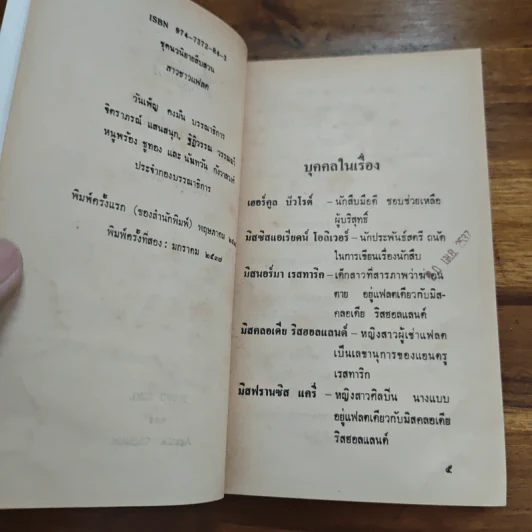 ISBN 974-7372-84-3
ชุดนวนิยายสืบสวน
สาวชาวแฟลต
วันเพ็ญ คงมั่น บรรณาธิการ
จิตราภรณ์ แสนสนุก, ฐิติวรรณ
หนูพร้อง ชูทอง และ นันทวัน
ประจำกองบรรณาธิการ
พิมพ์ครั้งแรก (ของสำนักพิมพ์) พฤษภาคม
พิมพ์ครั้งที่สอง : มกราคม ๒๕๓๗
บุคคลในเรื่อง
เฮอร์คูล ปัวโรต์ – นักสืบมือดี ชอบช่วยเหลือ
ผู้บริสุทธิ์
มิสซิสแอเรียดน์ โอลิเวอร์ – นักประพันธ์สตรี ถนัด
ในการเขียนเรื่องนักสืบ
มิสนอร์มา เรสทาริก – เด็กสาวที่สารภาพว่าฆ่าคน
ตาย อยู่แฟลตเดียวกับมิส-
คลอเดีย ริสฮอลแลนด์
มิสคลอเดีย ริสฮอลแลนด์ – หญิงสาวผู้เช่าแฟลต
เป็นเลขานุการของแอนดรู
เรสทาริก
มิสฟรานซิส แครี่ – หญิงสาวศิลปิน นางแบบ
อยู่แฟลตเดียวกับมิสคลอเดีย
ริสฮอลแลนด์
๕